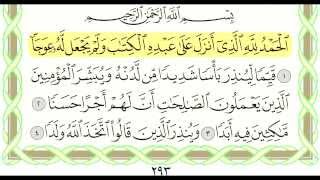 بِسْمِ اللَّهِ الرَّحْمَٰنِ الرَّحِيمِ
الْحَمْدُ لِلَّهِ الَّذِي أَنزَلَ عَلَىٰ عَبْدِهِ الْكِتَابَ وَلَمْ يَجْعَل لَّهُ عِوَجًا
١ قَيِّمًا لِّيُنذِرَ بَأْسًا شَدِيدًا مِّن لَّدُنْهُ وَيُبَشِّرَ الْمُؤْمِنِينَ
الَّذِينَ يَعْمَلُونَ الصَّالِحَاتِ أَنَّ لَهُمْ أَجْرًا حَسَنًا ٢
مَّاكِثِينَ فِيهِ أَبَدًا ٣ وَيُنذِرَ الَّذِينَ قَالُوا اتَّخَذَ اللَّهُ وَلَدًا ٤
٢٩٣